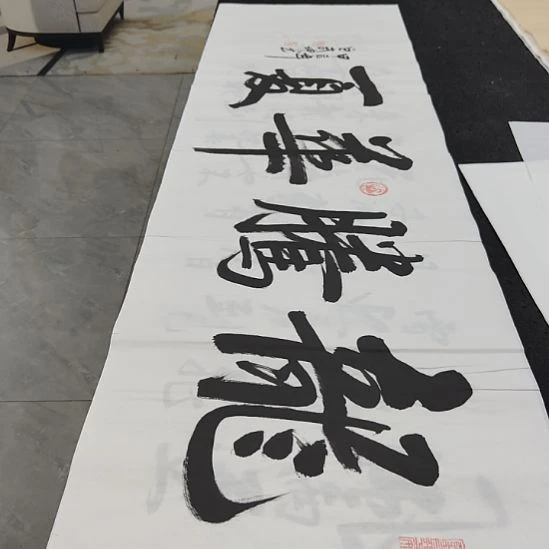 龍騰華夏